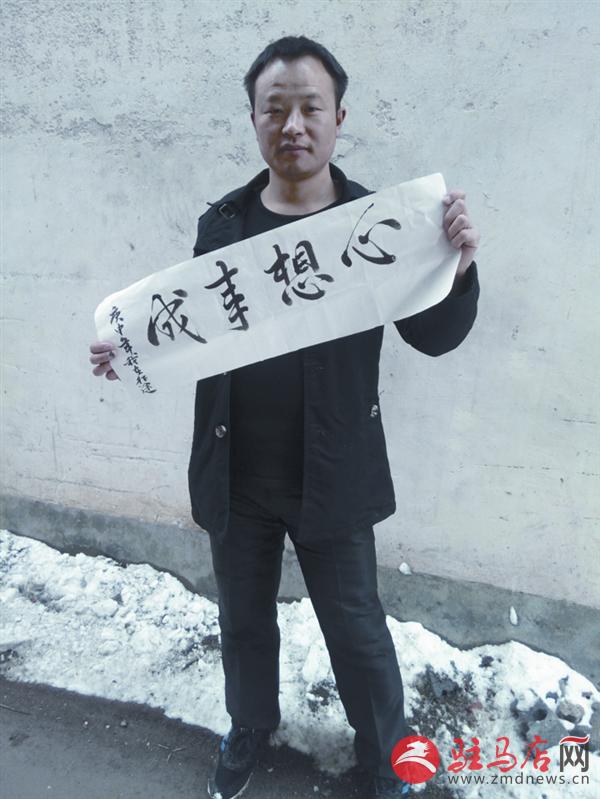 心想事成
年我在征途
驻马店网
www.zmdnews.cn